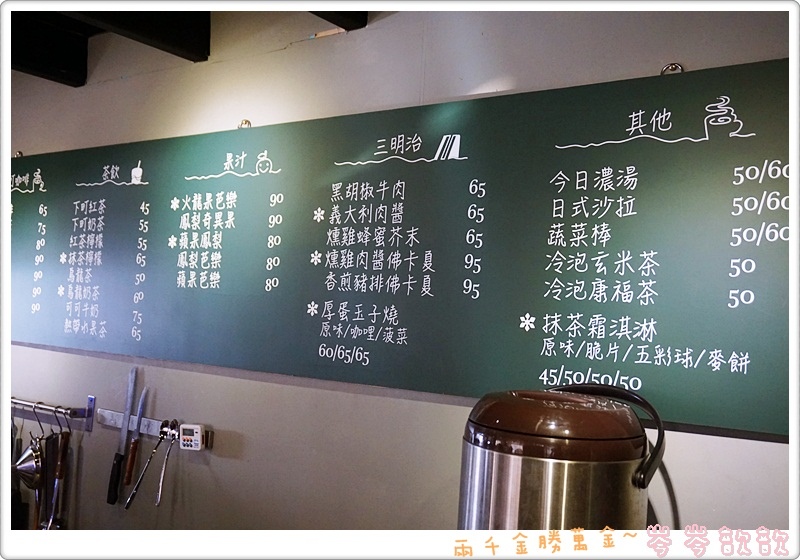 可咖啡
65
75
80
80
90
90
90
茶飲
下町紅茶 45
下町奶茶 55
紅茶檸檬 55
*抹茶檸檬 65
烏龍茶 50
*烏龍奶茶 60
可可牛奶 75
熱帶水果茶 65
果汁
*火龍果芭樂 90
鳳梨奇異果 90
*蘋果鳳梨 80
鳳梨芭樂 80
蘋果芭樂 80
三明治
黑胡椒牛肉 65
*義大利肉醬 65
燻雞蜂蜜芥末 65
*燻雞肉醬佛卡夏 95
香煎豬排佛卡夏 95
*厚蛋玉子燒
原味/咖哩/菠菜
60/65/65
其他
今日濃湯 50/60
日式沙拉 50/60
蔬菜棒 50/60
冷泡玄米茶 50
冷泡康福茶 50
*抹茶霜淇淋
原味/脆片/五彩球/麥餅
45/50/50/50
兩千金勝萬金~岑岑歆歆